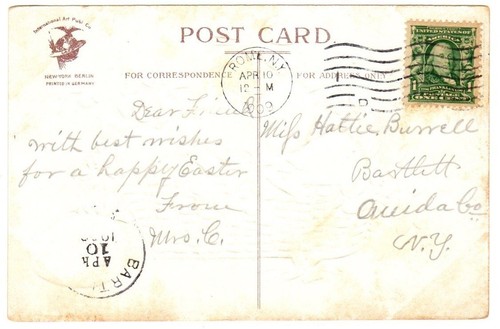 International Art Publ. Co.
NEW YORK BERLIN
PRINTED IN GERMANY
POST CARD.
FOR CORRESPONDENCE
FOR ADDRESS ONLY
ROME, N.Y.
APR 10
12 - M
1909
D
1
Dear Friend
with best wishes
for a happy Easter
From
Mrs. C.
Miss Hattie Burrell
Bartlett
Oneida Co
N.Y.
BART
APR
10